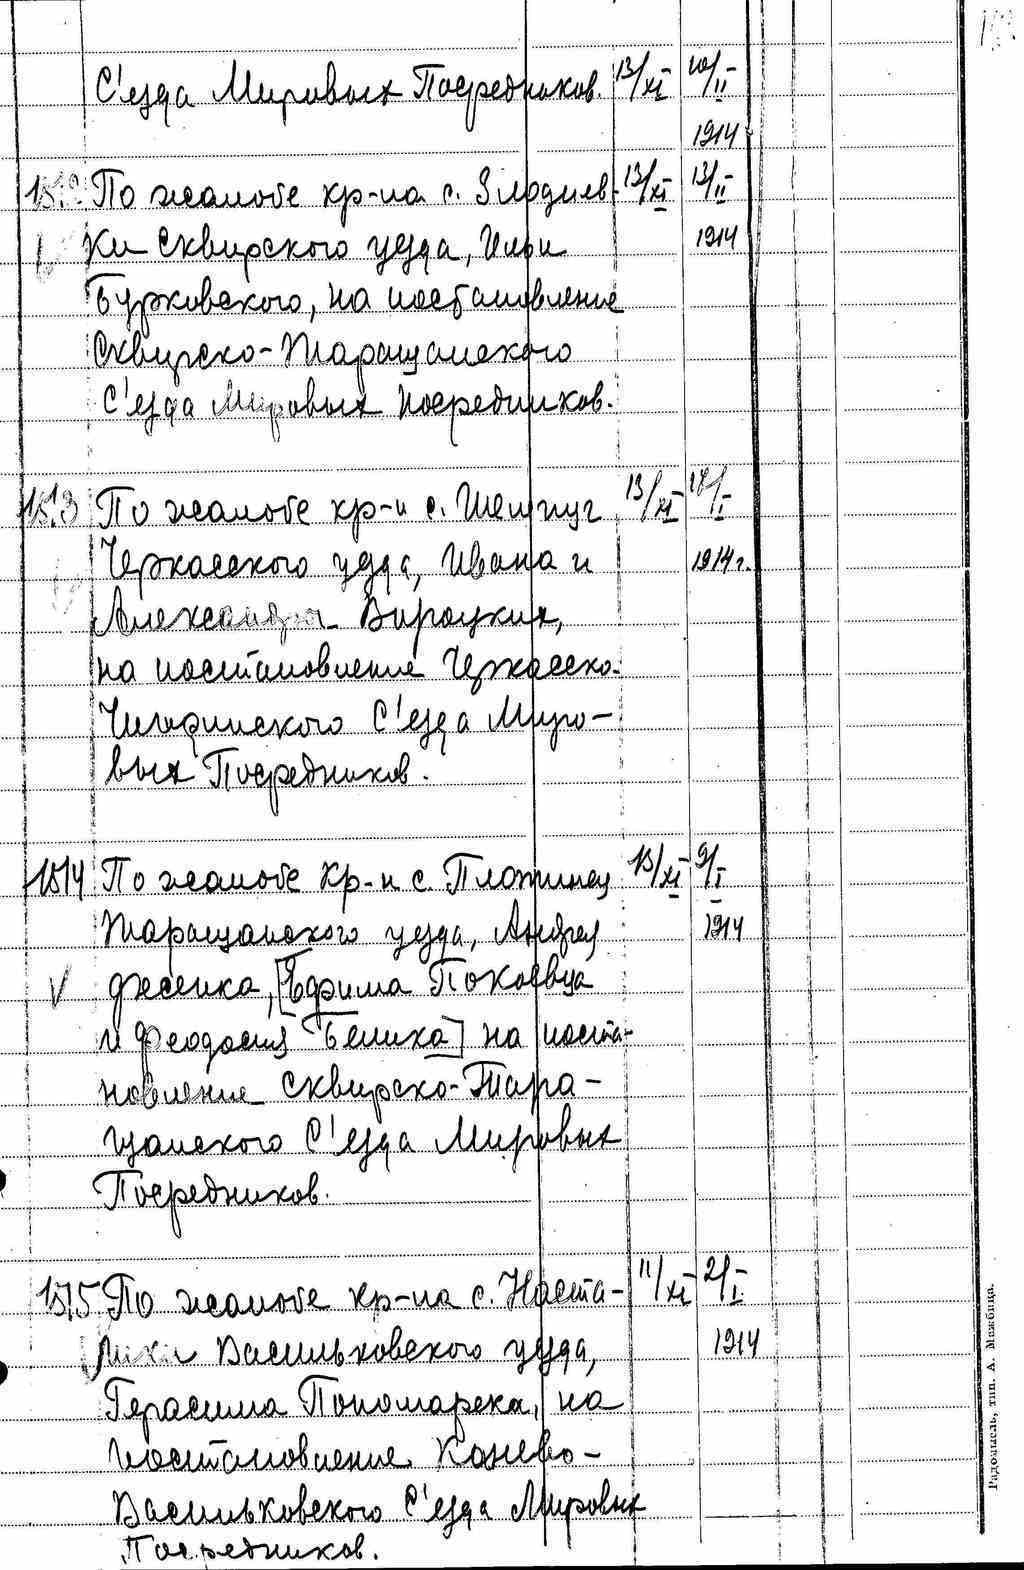 С'езда Мировых Посредников. 13/XI 10/II
1914
1512 По жалобе кр-на с. Злодиев- 13/XI 13/II
ки Сквирского уезда, Ильи 1914
Бурковского, на постановление
Сквирско-Таращанского
С'езда Мировых посредников.
1513 По жалобе кр-н с. 13/XI /I
Черкасского уезда, Ивана и 1914 г.
Александры
на постановление Черкасско-
Чигиринского С'езда Миро-
вых Посредников.
1514 По жалобе кр-н с. Плоттинец 13/XI 9/I
Таращанского уезда, Андрея 1914
[Ефима Покоевца
и Феодосия Белика] на поста-
новление Сквирско-Тара-
щанского С'езда Мировых
Посредников.
1515 По жалобе кр-на с. Наста- 11/XI 2/I
шки Васильковского уезда, 1914
Герасима Пономарека, на
постановление Канево-
Васильковского С'езда Мировых
Посредников.
Радомысль, тип. А. Межбица.